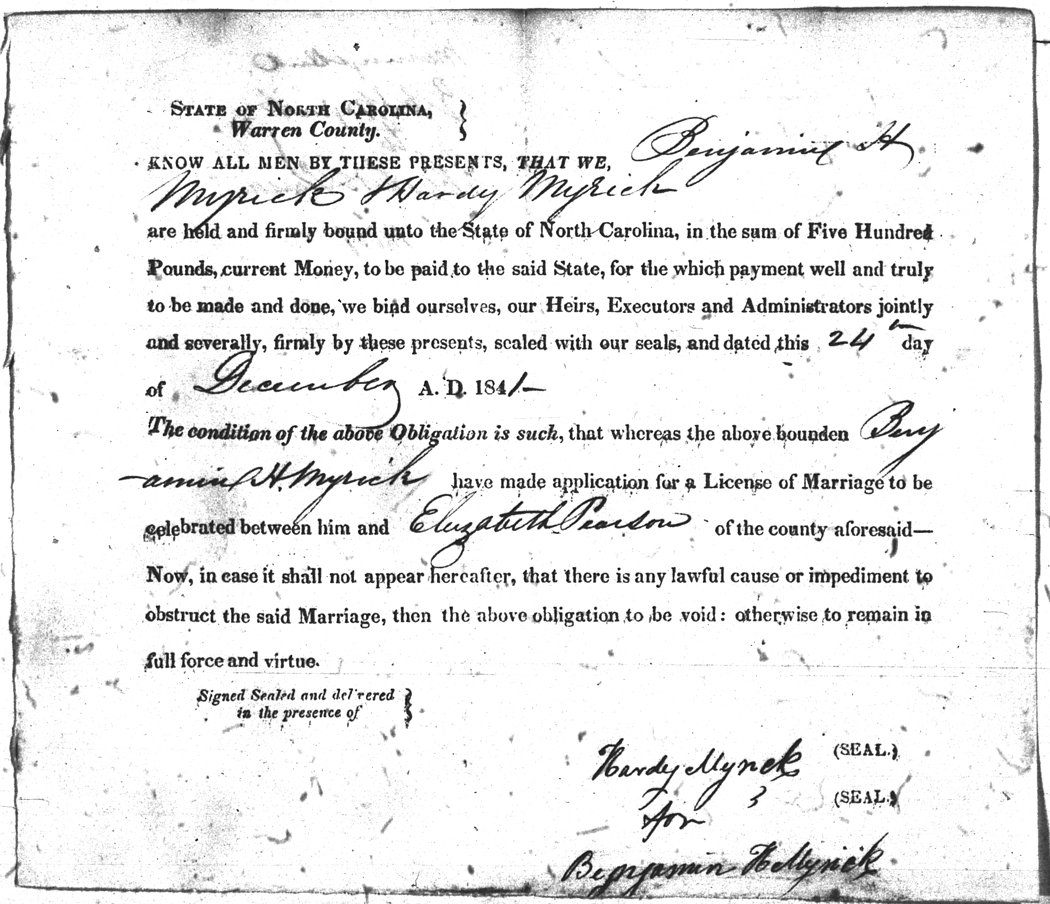 STATE OF NORTH CAROLINA,
Warren County.
KNOW ALL MEN BY THESE PRESENTS, THAT WE, Benjamin H
Myrick & Hardy Myrick
are held and firmly bound unto the State of North Carolina, in the sum of Five Hundred
Pounds, current Money, to be paid to the said State, for the which payment well and truly
to be made and done, we bind ourselves, our Heirs, Executors and Administrators jointly
and severally, firmly by these presents, sealed with our seals, and dated this 24th day
of December A. D. 1841-
The condition of the above Obligation is such, that whereas the above bounden Benj
-amin H. Myrick have made application for a License of Marriage to be
celebrated between him and Elizabeth Pearson of the county aforesaid—
Now, in case it shall not appear hereafter, that there is any lawful cause or impediment to
obstruct the said Marriage, then the above obligation to be void: otherwise to remain in
full force and virtue.
Signed Sealed and delivered
in the presence of
Hardy Myrick (SEAL.)
for (SEAL.)
Benjamin H Myrick